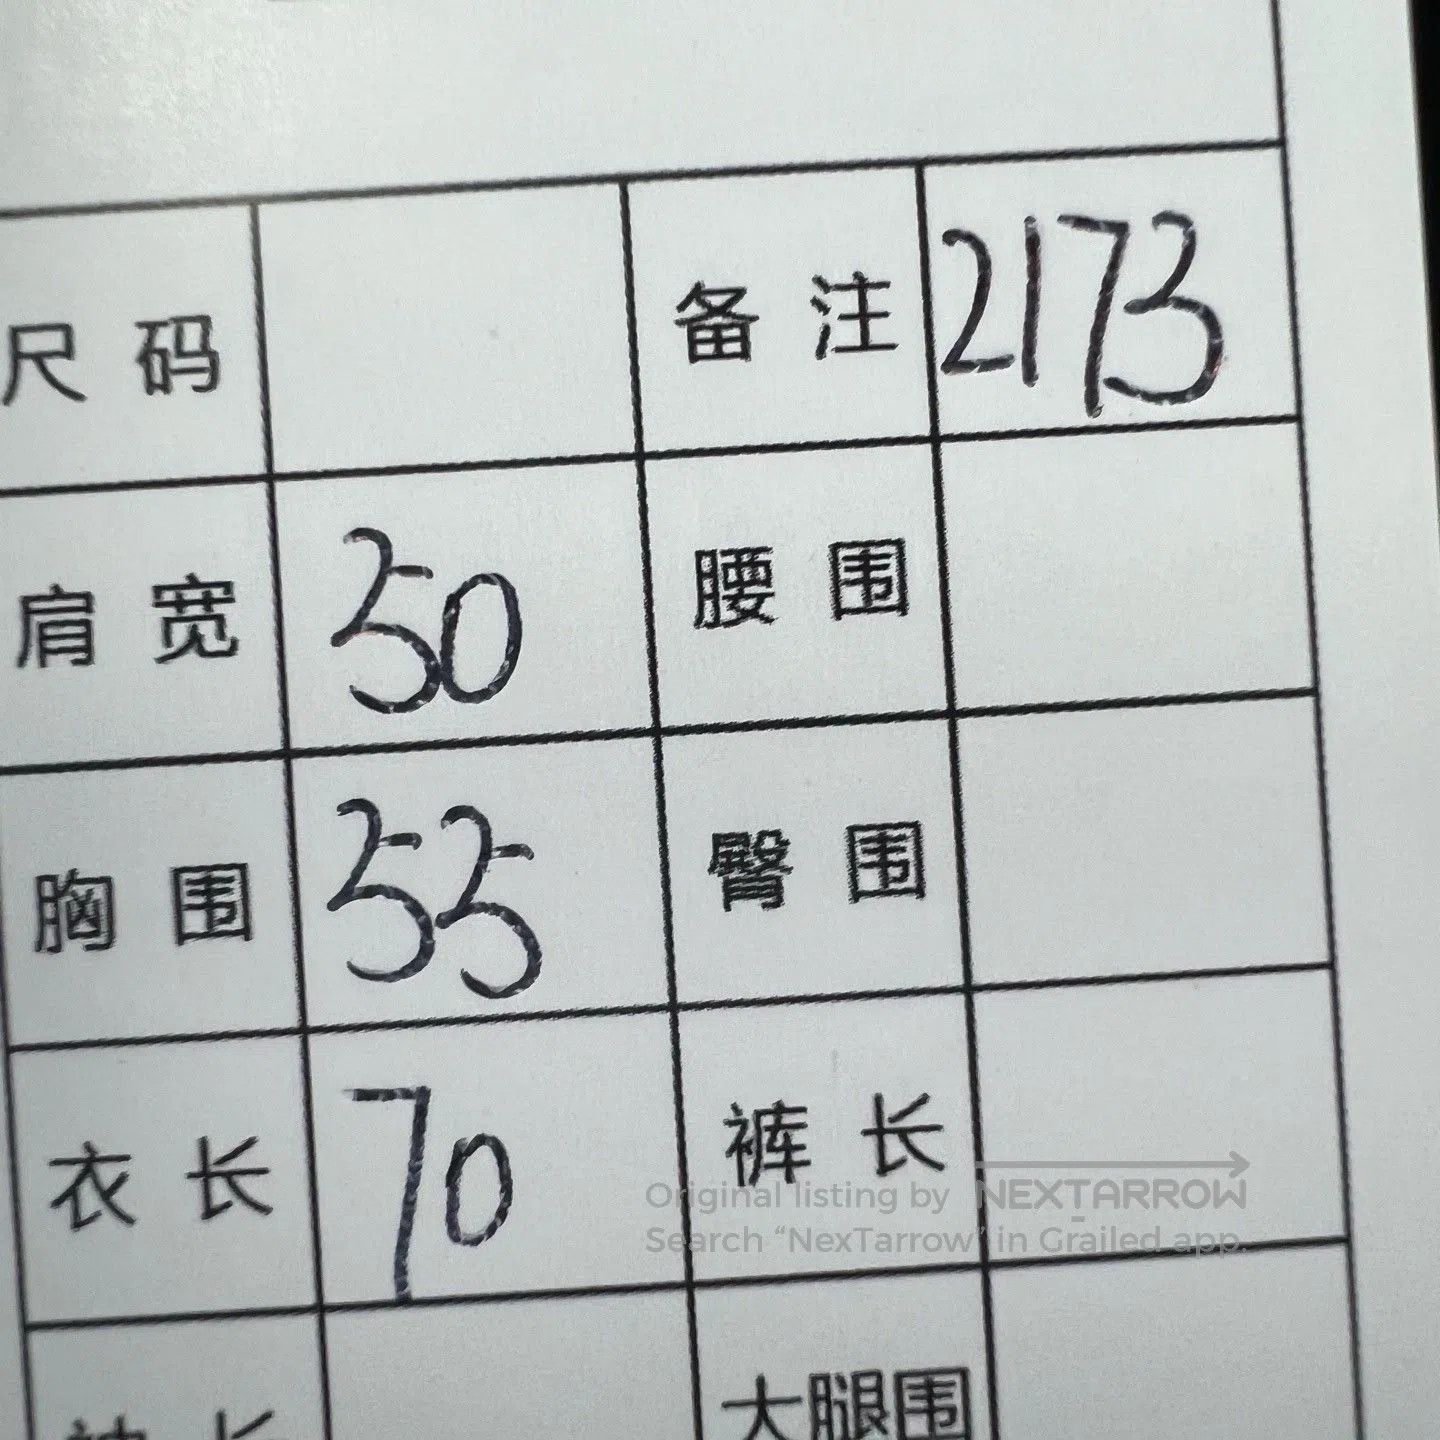 尺码 备注 2173
肩宽 50 腰围
胸围 55 臀围
衣长 70 裤长
Original listing by NEXTARROW
Search “NexTarrow” in Grailed app.
大腿围